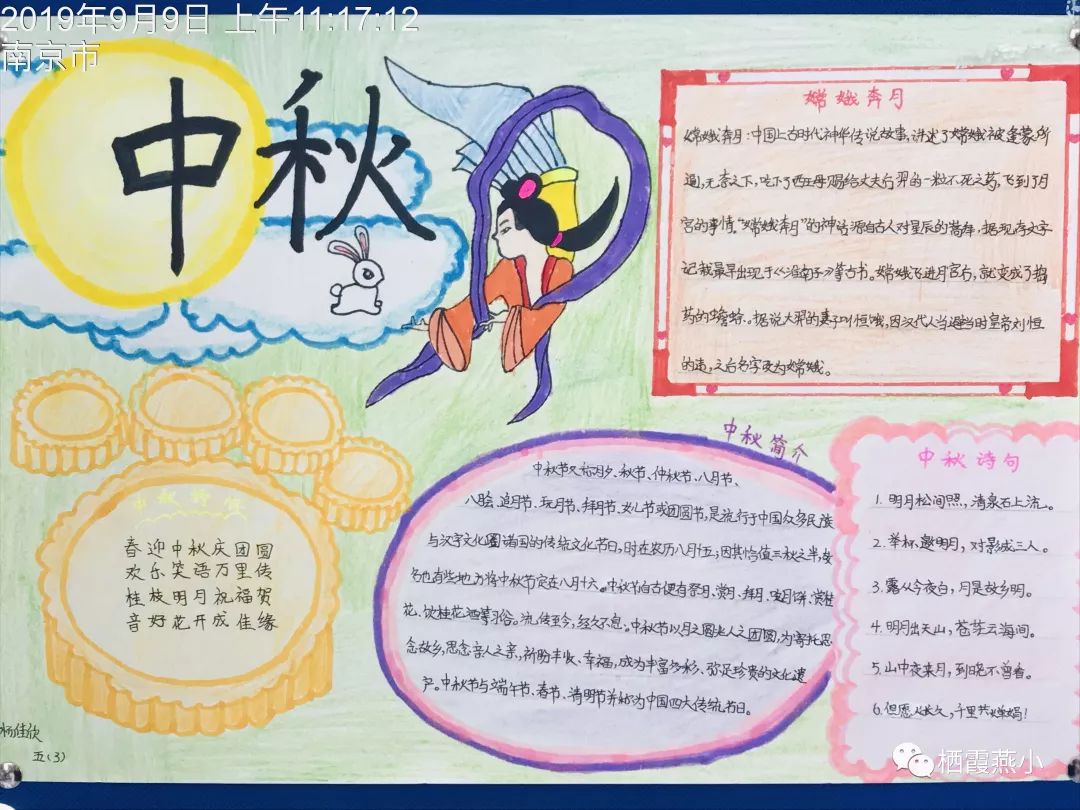 2019年9月9日 上午11:17:12
南京市
中秋
嫦娥奔月
嫦娥奔月：中国上古时代神华传说故事，讲述了嫦娥被逢蒙所
逼，无奈之下，吃下了西王母赐给丈夫后羿的一粒不死之药，飞到了月
宫的事情。“嫦娥奔月”的神话源自古人对星辰的崇拜，据现存文字
记载最早出现于《淮南子》等古书。嫦娥飞进月宫后，就变成了捣
药的蟾蜍。据说大羿的妻子叫恒娥，因汉代人当避当时皇帝刘恒
的造，之后名字更为嫦娥。
中秋诗
春迎中秋庆团圆
欢乐笑语万里传
桂枝明月祝福贺
音好花开成佳缘
杨佳欣
五(3)
中秋简介
中秋节又称月夕、秋节、仲秋节、八月节、
八会、追月节、玩月节、拜月节、女儿节或团圆节，是流行于中国众多民族
与汉字文化圈诸国的传统文化节日，时在农历八月十五；因其恰值三秋之半，故
名也有些地方将中秋节定在八月十六。中秋节自古便有祭月、赏月、拜月、吃月饼、赏桂
花、饮桂花酒等习俗。流传至今，经久不息。中秋节以月之圆兆人之团圆，为寄托思
念故乡，思念亲人之亲，祈盼丰收、幸福，成为丰富多彩、弥足珍贵的文化遗
产。中秋节与端午节、春节、清明节并称为中国四大传统节日。
中秋诗句
1. 明月松间照，清泉石上流。
2. 举杯邀明月，对影成三人。
3. 露从今夜白，月是故乡明。
4. 明月出天山，苍茫云海间。
5. 山中夜来月，到晓不曾看。
6. 但愿人长久，千里共婵娟！
栖霞燕小